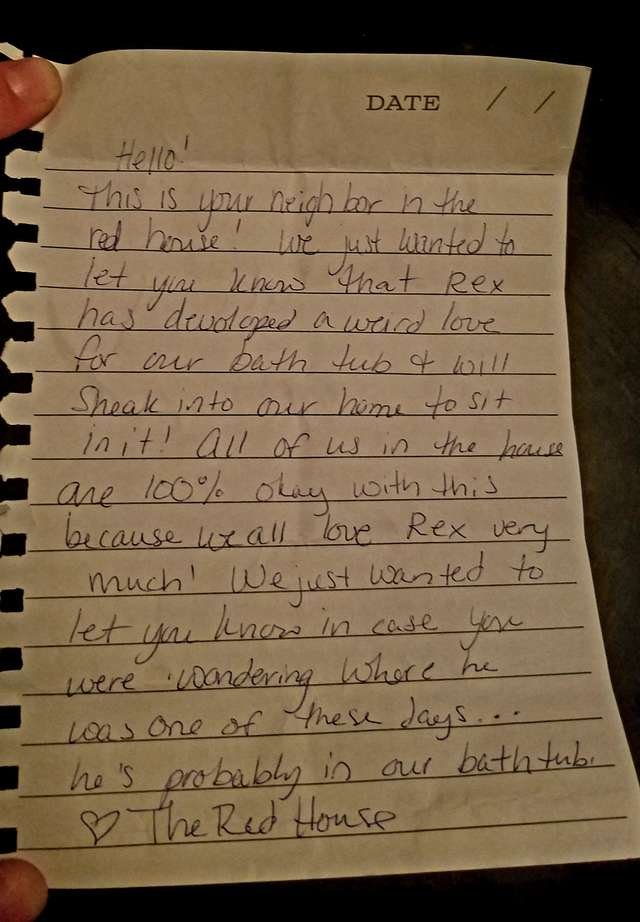 DATE / /
Hello!
This is your neighbor in the
red house! We just wanted to
let you know that Rex
has devoloped a weird love
for our bath tub & will
Sneak into our home to sit
in it! All of us in the house
are 100% okay with this
because we all love Rex very
much! We just wanted to
let you know in case you
were wondering where he
was one of these days...
he's probably in our bathtub.
♡ The Red House